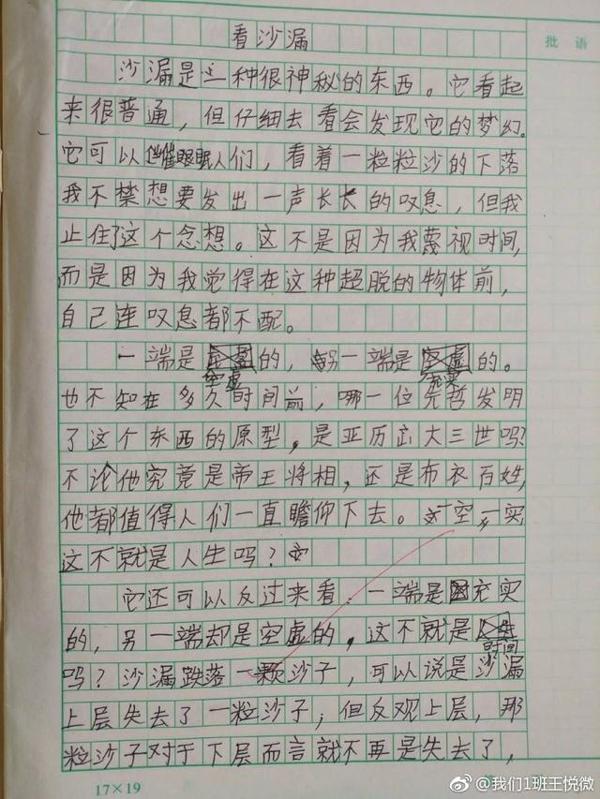 看沙漏
批语
沙漏是一种很神秘的东西。它看起
来很普通，但仔细去看会发现它的梦幻。
它可以催眠人们，看着一粒粒沙的下落
我不禁想要发出一声长长的叹息，但我
止住了这个念想。这不是因为我蔑视时间，
而是因为我觉得在这种超脱的物体前，
自己连叹息都不配。
一端是空虚的，另一端是充实的。
也不知在多久时间前，哪一位先哲发明
了这个东西的原型，是亚历山大三世吗？
不论他究竟是帝王将相，还是布衣百姓，
他都值得人们一直瞻仰下去。一空一实
这不就是人生吗？
它还可以反过来看，一端是充实
的，另一端却是空虚的，这不就是时间
吗？沙漏跌落一颗沙子，可以说是沙漏
上层失去了一粒沙子；但反观上层，那
粒沙子对于下层而言就不再是失去了，
17×19
@我们1班王悦微